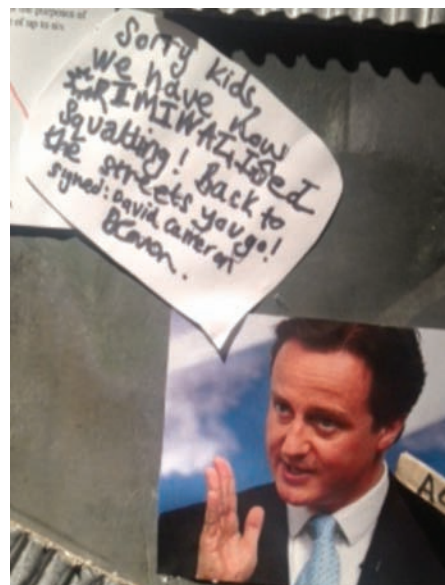 purposes of
of up to six
Sorry kids,
we have now
CRIMINALISED
squatting! Back to
the streets you go!
signed: David Cameron
DCameron.
A